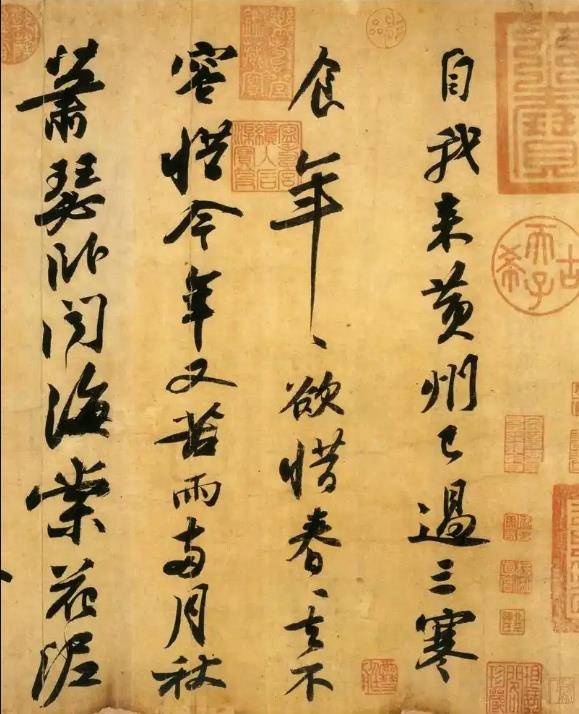 自我来黄州已過三寒
食年〻欲惜春〻去不
容惜今年又苦雨兩月秋
蕭瑟卧聞海棠花泥
古希天子